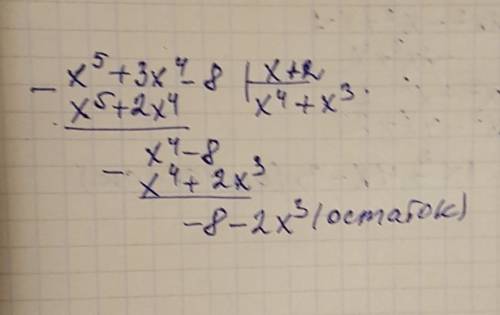 - x⁵+3x⁴-8 | x+2
x⁵+2x⁴ x⁴+x³
x⁴-8
- x⁴+2x³
-8-2x³(остаток)